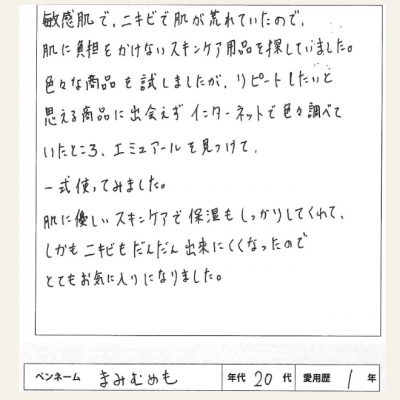 敏感肌で、ニキビで肌が荒れていたので、
肌に負担をかけないスキンケア用品を探していました。
色々な商品を試しましたが、リピートしたいと
思える商品に出会えずインターネットで色々調べて
いたところ、エミュアールを見つけて、
一式使ってみました。
肌に優しいスキンケアで保湿もしっかりしてくれて、
しかもニキビもだんだん出来にくくなったので
とてもお気に入りになりました。
ペンネーム まみむめも 年代 20 代 愛用歴 1 年